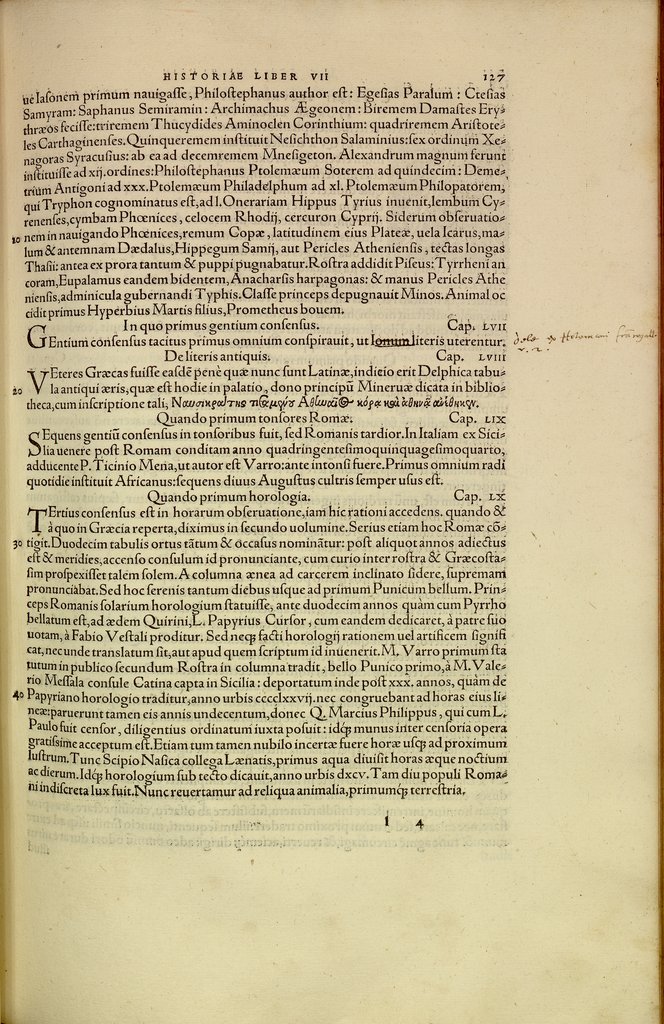 HISTORIAE LIBER VII 127
ue Iasonem primum nauigasse, Philostephanus author est: Egesias Paralum: Ctesias
Samyram: Saphanus Semiramin: Archimachus Ægeonem: Biremem Damastes Ery-
thræos fecisse: triremem Thucydides Aminoclen Corinthium: quadriremem Aristote-
les Carthaginenses. Quinqueremem instituit Nesichthon Salaminius: sex ordinum Xe-
nagoras Syracusius: ab ea ad decemremem Mnesigeton. Alexandrum magnum ferunt
instituisse ad xij. ordines: Philostephanus Ptolemæum Soterem ad quindecim: Deme-
trium Antigoni ad xxx. Ptolemæum Philadelphum ad xl. Ptolemæum Philopatorem,
qui Tryphon cognominatus est, ad l. Onerariam Hippus Tyrius inuenit, lembum Cy-
renenses, cymbam Phœnices, celocem Rhodij, cercuron Cyprij. Siderum obseruatio-
10 nem in nauigando Phœnices, remum Copæ, latitudinem eius Plateæ, uela Icarus, ma-
lum & antemnam Dædalus, Hippegum Samij, aut Pericles Atheniensis, tectas longas
Thasii: antea ex prora tantum & puppi pugnabatur. Rostra addidit Piseus: Tyrrheni an
coram, Eupalamus eandem bidentem, Anacharsis harpagonas: & manus Pericles Athe
niensis, adminicula gubernandi Typhis. Classe princeps depugnauit Minos. Animal oc
cidit primus Hyperbius Martis filius, Prometheus bouem.
In quo primus gentium consensus. Cap. LVII
GEntium consensus tacitus primus omnium conspirauit, ut Ionum literis uterentur.
dele
De literis antiquis. Cap. LVIII
VEteres Græcas fuisse easdē penè quæ nunc sunt Latinæ, indicio erit Delphica tabu-
20 la antiqui æris, quæ est hodie in palatio, dono principū Mineruæ dicata in biblio-
theca, cum inscriptione tali,
Quando primum tonsores Romæ. Cap. LIX
SEquens gentiū consensus in tonsoribus fuit, sed Romanis tardior. In Italiam ex Sici-
lia uenere post Romam conditam anno quadringentesimoquinquagesimoquarto,
adducente P. Ticinio Mena, ut autor est Varro: ante intonsi fuere. Primus omnium radi
quotidie instituit Africanus: sequens diuus Augustus cultris semper usus est.
Quando primum horologia. Cap. LX
TErtius consensus est in horarum obseruatione, iam hic rationi accedens. quando &
à quo in Græcia reperta, diximus in secundo uolumine. Serius etiam hoc Romæ cō-
30 tigit. Duodecim tabulis ortus tātum & occasus nominātur: post aliquot annos adiectus
est & meridies, accenso consulum id pronunciante, cum curio inter rostra & Græcosta-
sim prospexisset talem solem. A columna ænea ad carcerem inclinato sidere, supremam
pronunciabat. Sed hoc serenis tantum diebus usque ad primum Punicum bellum. Prin-
ceps Romanis solarium horologium statuisse, ante duodecim annos quàm cum Pyrrho
bellatum est, ad ædem Quirini, L. Papyrius Cursor, cum eandem dedicaret, à patre suo
uotam, à Fabio Vestali proditur. Sed neq; facti horologij rationem uel artificem signifi
cat, nec unde translatum sit, aut apud quem scriptum id inuenerit. M. Varro primum sta
tutum in publico secundum Rostra in columna tradit, bello Punico primo, à M. Vale-
rio Messala consule Catina capta in Sicilia: deportatum inde post xxx. annos, quàm de
40 Papyriano horologio traditur, anno urbis cccclxxvij. nec congruebant ad horas eius li-
neæ: paruerunt tamen eis annis undecentum, donec Q. Marcius Philippus, qui cum L.
Paulo fuit censor, diligentius ordinatum iuxta posuit: idq; munus inter censoria opera
gratissime acceptum est. Etiam tum tamen nubilo incertæ fuere horæ usq; ad proximum
lustrum. Tunc Scipio Nasica collega Lænatis, primus aqua diuisit horas æque noctium
ac dierum. Idq; horologium sub tecto dicauit, anno urbis dxcv. Tam diu populi Roma-
ni indiscreta lux fuit. Nunc reuertamur ad reliqua animalia, primumq; terrestria.
l 4